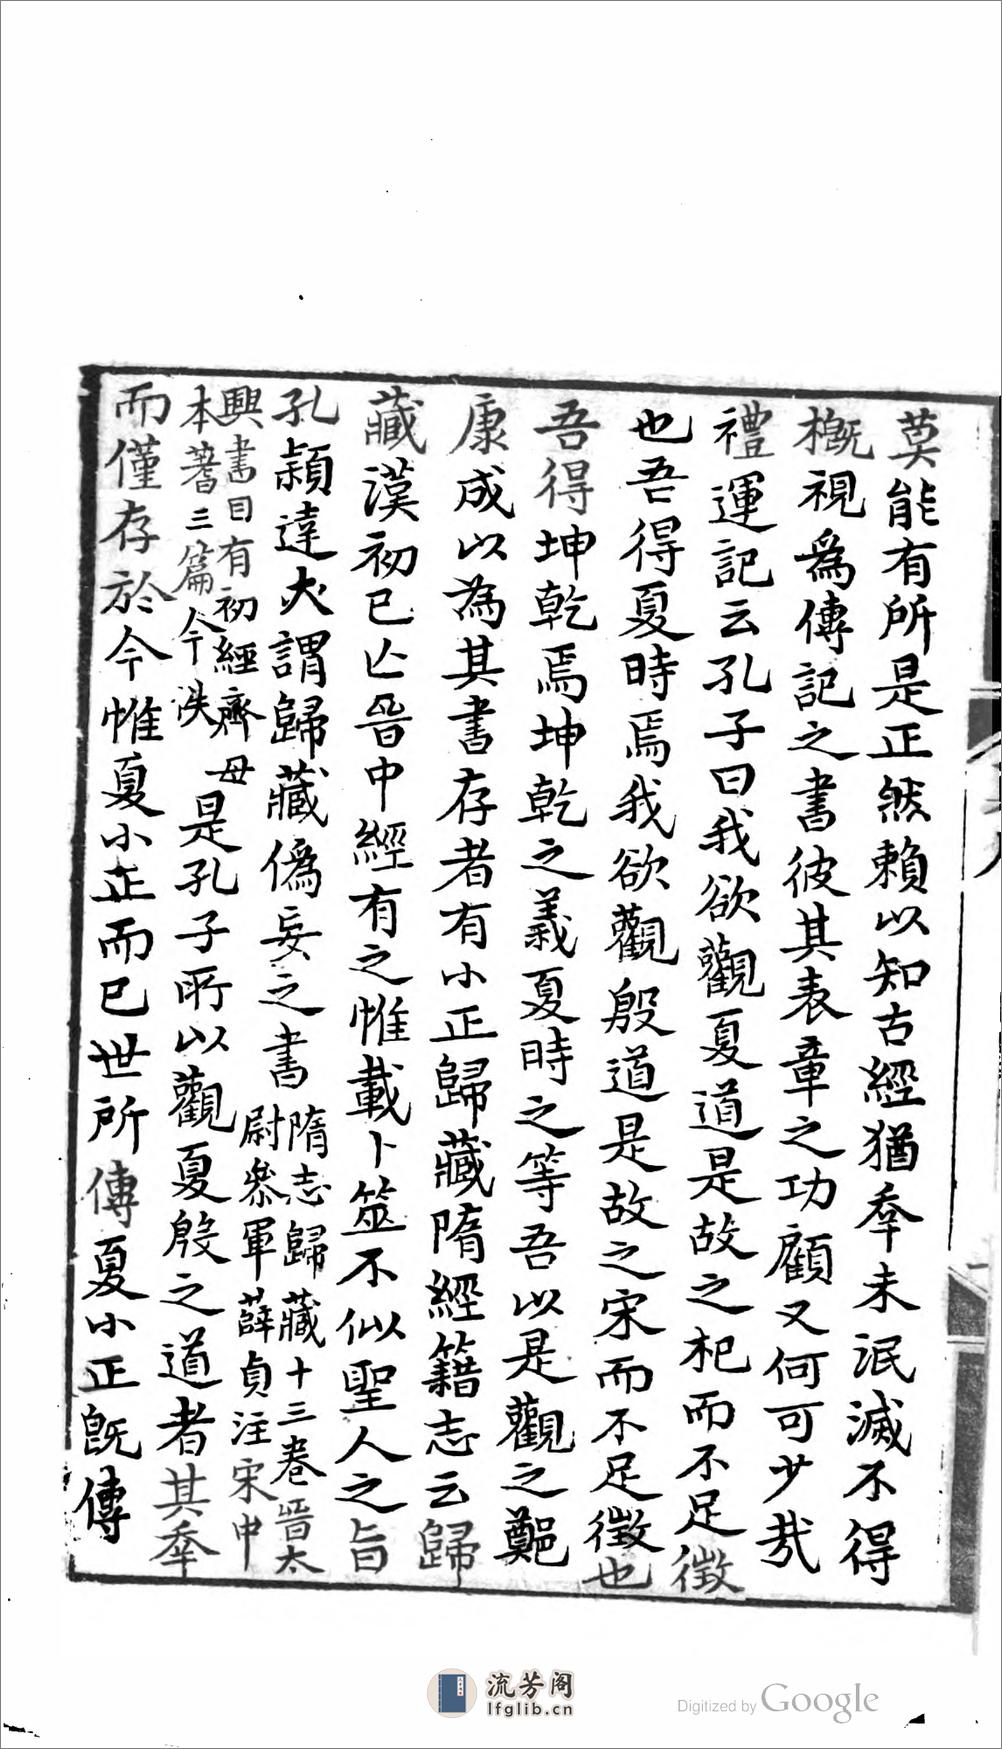 莫能有所是正然賴以知古經猶幸未泯滅不得
槪視爲傳記之書彼其表章之功顧又何可少哉
禮運記云孔子曰我欲觀夏道是故之杞而不足徵
也吾得夏時焉我欲觀殷道是故之宋而不足徵也
吾得坤乾焉坤乾之義夏時之等吾以是觀之鄭
康成以為其書存者有小正歸藏隋經籍志云歸
藏漢初已亡晉中經有之惟載卜筮不似聖人之旨
孔穎達亦謂歸藏僞妄之書隋志歸藏十三卷晉太
尉參軍薛貞注宋中
興書目有初經齊母
本蓍三篇今泆是孔子所以觀夏殷之道者其幸
而僅存於今惟夏小正而已世所傳夏小正既傳
流芳阁
lfglib.cn
Digitized by Google